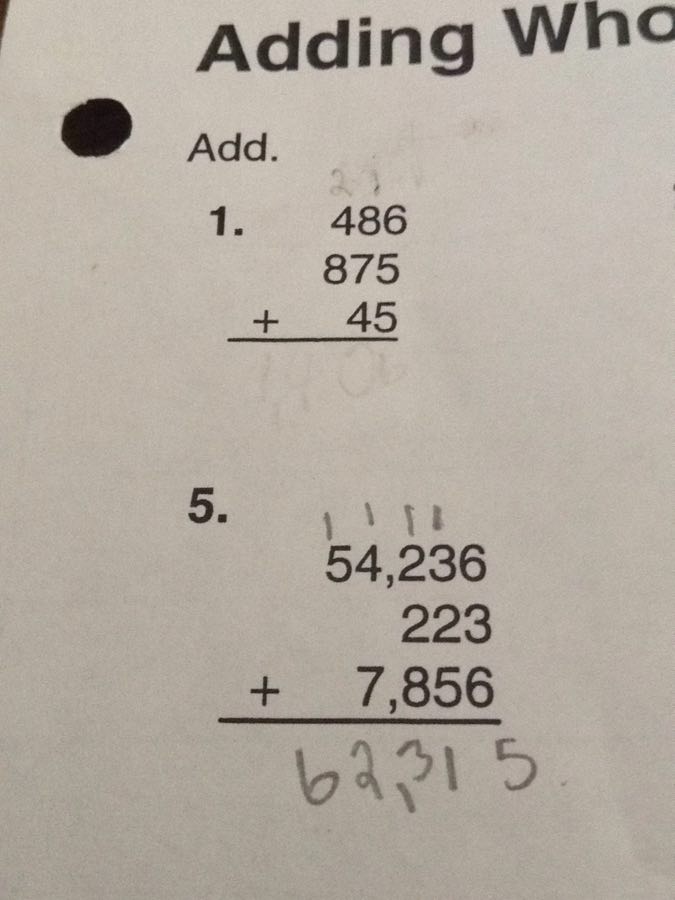 Adding Who
Add.
1.
2 1
486
875
+ 45
1406
5.
1 1 1 1
54,236
223
+ 7,856
62,315